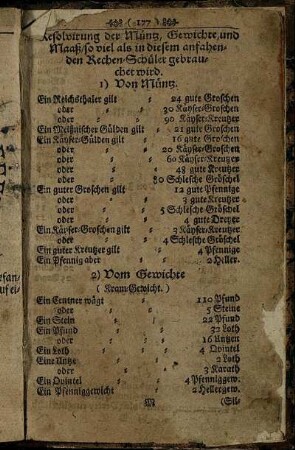 ( 177 )
Resolvirung der Müntz, Gewichte, und
Maaß, so viel als in diesem anfahen-
den Rechen-Schüler gebrau-
chet wird.
1) Von Müntz.
Ein Reichsthaler gilt 24 gute Groschen
oder 30 Käyser-Groschen
oder 90 Käyser-Kreutzer
Ein Meißnischer Gülden gilt 21 gute Groschen
Ein Käyser-Gülden gilt 16 gute Groschen
oder 20 Käyser-Groschen
oder 60 Käyser-Kreutzer
oder 48 gute Kreutzer
oder 80 Schlesche Gröschel
Ein guter Groschen gilt 12 gute Pfennige
oder 3 gute Kreutzer
oder 5 Schlesche Gröschel
oder 4 gute Dreyer
Ein Käyser-Groschen gilt 3 Käyser-Kreutzer
oder 4 Schlesche Gröschel
Ein guter Kreutzer gilt 4 Pfennige
Ein Pfennig aber 2 Heller.
2) Vom Gewichte
( Kram-Gewicht. )
Ein Centner wägt 110 Pfund
oder 5 Steine
Ein Stein 22 Pfund
Ein Pfund 32 Loth
oder 16 Untzen
Ein Loth 4 Quintel
Eine Untze 2 Loth
oder 3 Karath
Ein Quintel 4 Pfenniggew.
Ein Pfenniggewicht 2 Hellergew.
M (Sil-